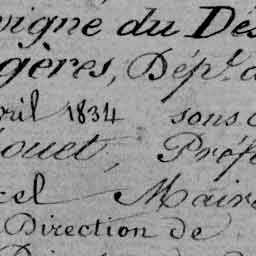 vigné du Dés
gères, Dépt. d
vril 1834 sous
ouet, Préf
cel Maire
Direction de